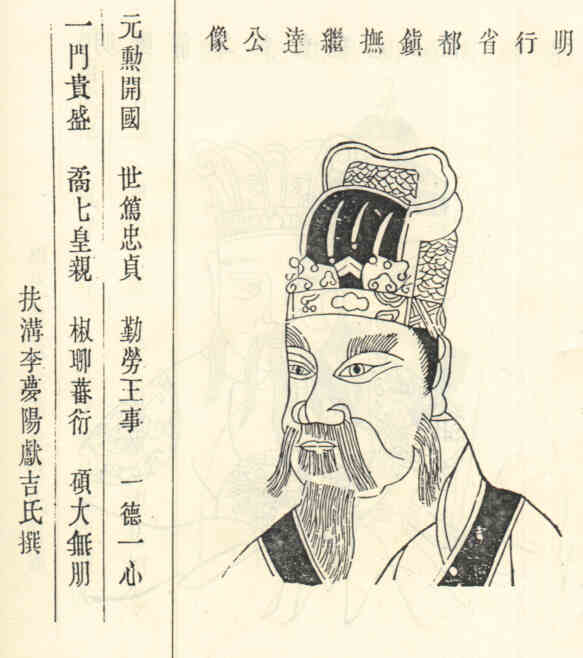 明行省都鎮撫繼達公像
元勳開國 世篤忠貞 勤勞王事 一德一心
一門貴盛 喬七皇親 椒聊蕃衍 碩大無朋
扶溝李夢陽獻吉氏撰